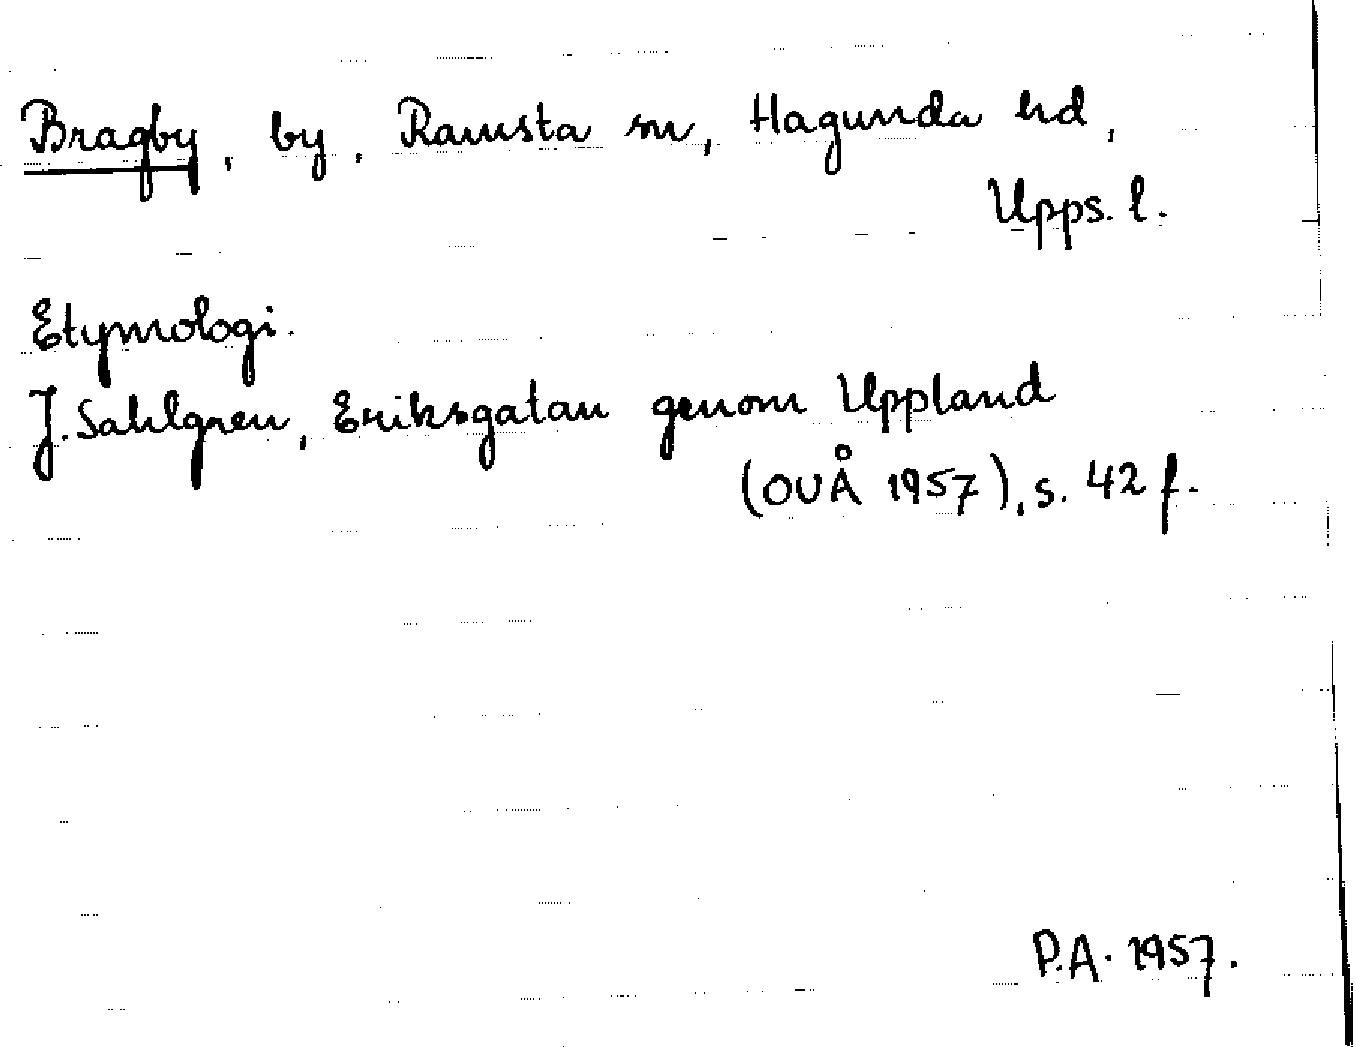 Bragby, by, Ramsta sn, Hagunda hd,
Upps. l.
Etymologi.
J. Sahlgren, Eriksgatan genom Uppland
(OUÅ 1957), s. 42 f.
P.A. 1957.